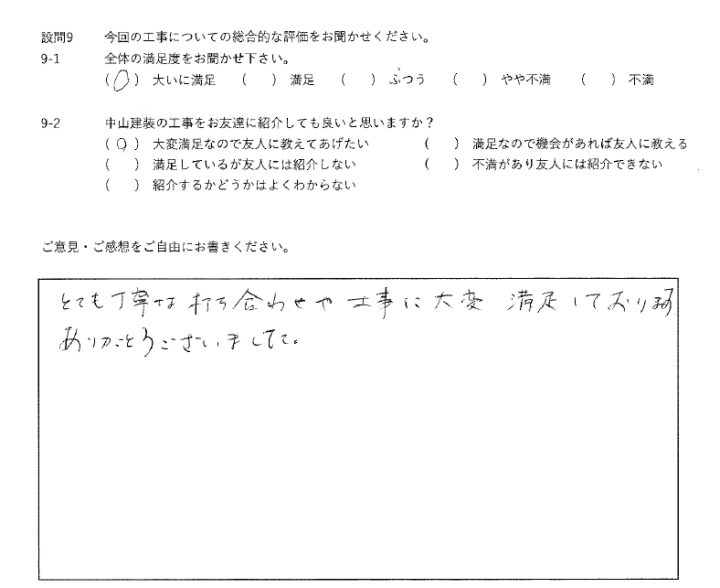 設問9 今回の工事についての総合的な評価をお聞かせください。
9-1 全体の満足度をお聞かせ下さい。
(○) 大いに満足 ( ) 満足 ( ) ふつう ( ) やや不満 ( ) 不満
9-2 中山建装の工事をお友達に紹介しても良いと思いますか？
(○) 大変満足なので友人に教えてあげたい ( ) 満足なので機会があれば友人に教える
( ) 満足しているが友人には紹介しない ( ) 不満があり友人には紹介できない
( ) 紹介するかどうかはよくわからない
ご意見・ご感想をご自由にお書きください。
とても丁寧な打ち合わせや工事に大変 満足しております
ありがとうございました。